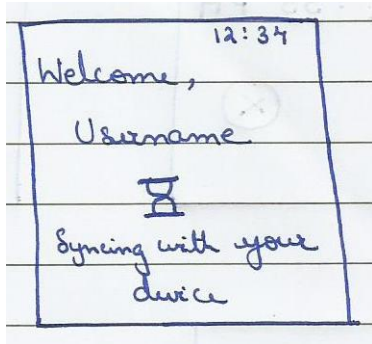 12:34
Welcome,
Username
Syncing with your
device